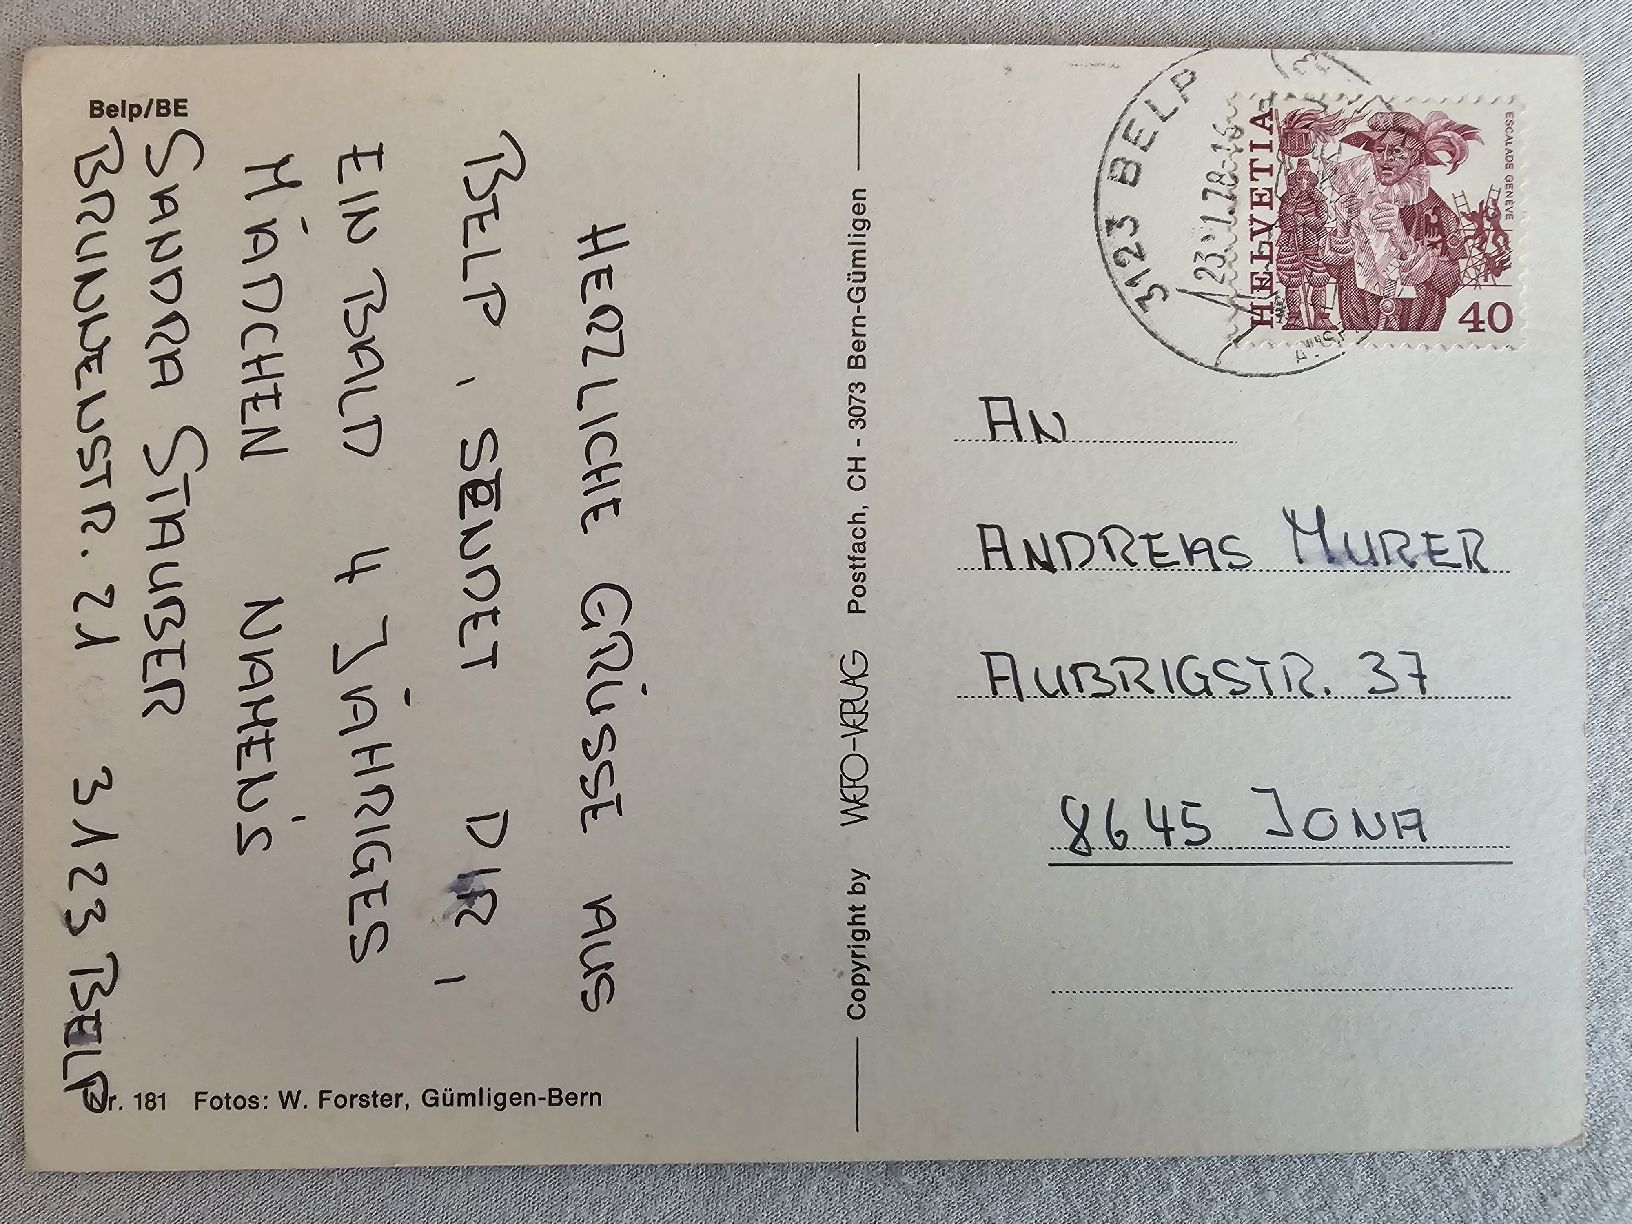 Belp/BE
HERZLICHE GRÜSSE AUS
BELP, SENDET DIR,
EIN BALD 4 JÄHRIGES
MÄDCHEN NAMENS
SANDRA STAUBER
BRUNNENSTR. 21 3123 BELP
Nr. 181 Fotos: W. Forster, Gümligen-Bern
Copyright by WEFO-VERLAG Postfach, CH - 3073 Bern-Gümligen
3123 BELP
HELVETIA
ESCALADE GENÈVE
40
AN
ANDREAS MURER
AUBRIGSTR. 37
8645 JONA